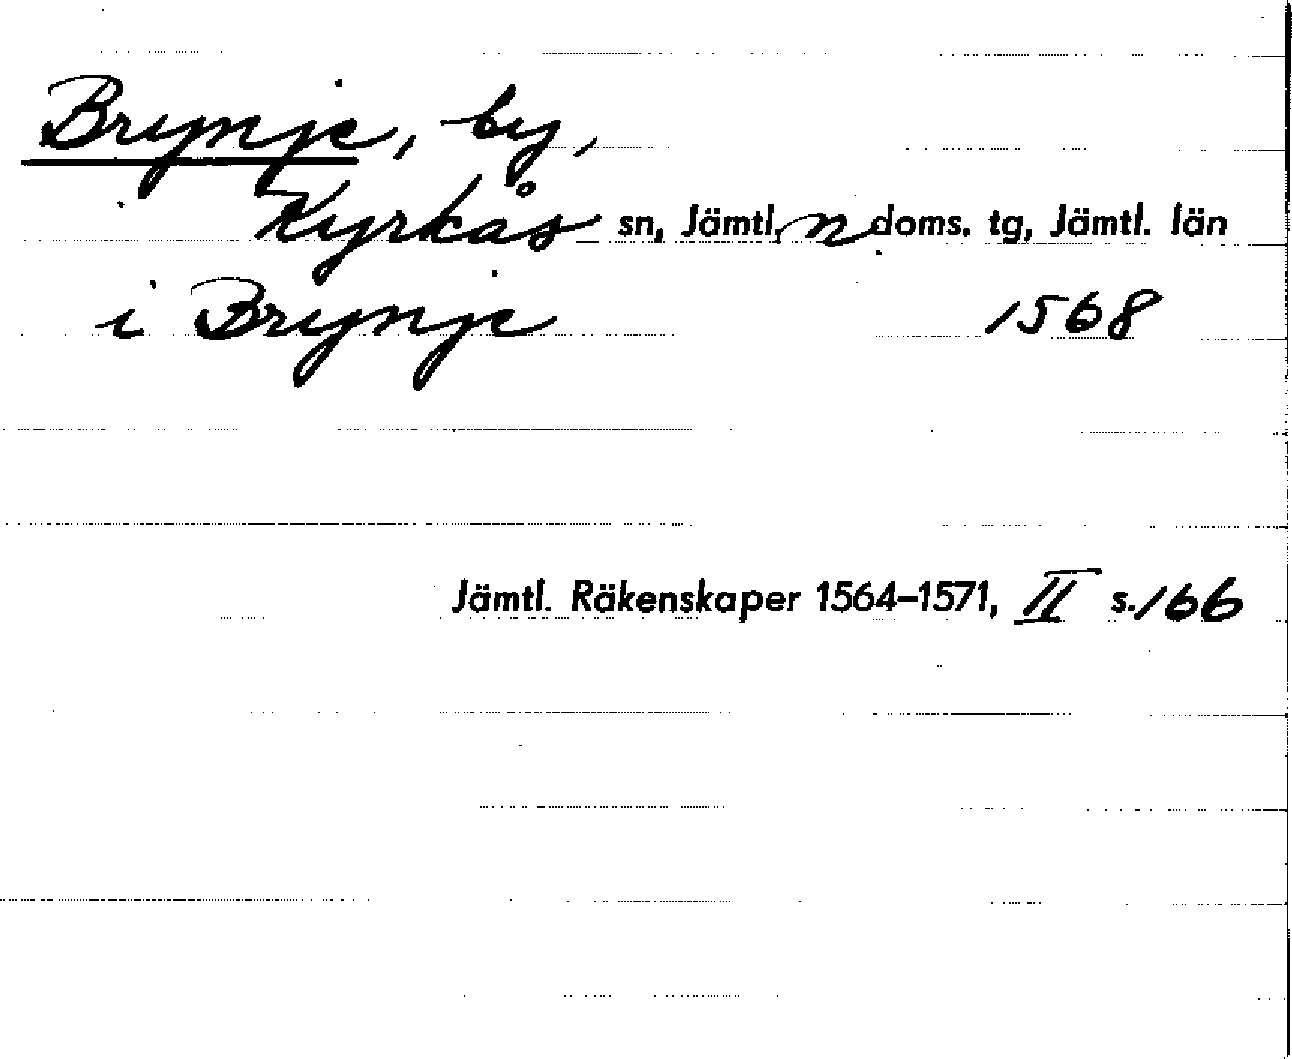 Brynje, by,
Kyrkås sn, Jämtl. n doms. tg, Jämtl. län
i Brynje 1568
Jämtl. Räkenskaper 1564–1571, II s. 166